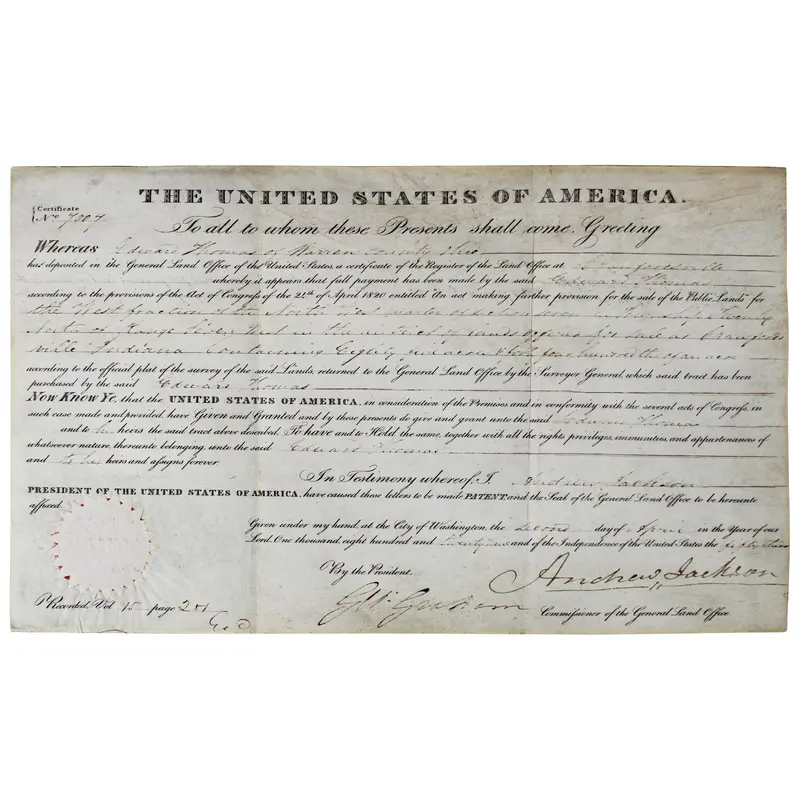 THE UNITED STATES OF AMERICA.
Certificate
No. 7007
To all to whom these Presents shall come, Greeting
Whereas Edward Thomas of Warren County Ohio
has deposited in the General Land Office of the United States, a certificate of the Register of the Land Office at Crawfordsville
whereby it appears that full payment has been made by the said Edward Thomas
according to the provisions of the Act of Congress of the 24th of April 1820 entitled "An act making further provision for the sale of the Public Lands" for
the West fraction of the North West quarter of Section seven in Township Twenty
North of Range Seven West in the District of Lands offered for sale at Crawfords
ville Indiana containing Eighty acres & forty four hundredth of an acre
according to the official plat of the survey of the said Lands, returned to the General Land Office by the Surveyor General, which said tract has been
purchased by the said Edward Thomas
Now Know Ye, that the UNITED STATES OF AMERICA, in consideration of the Premises, and in conformity with the several acts of Congress, in
such case made and provided, have Given and Granted and by these presents do give and grant unto the said Edward Thomas
and to his heirs the said tract above described. To have and to Hold the same, together with all the rights privileges, immunities, and appurtenances of
whatsoever nature, thereunto belonging, unto the said Edward Thomas
and to his heirs and assigns forever.
In Testimony whereof, I Andrew Jackson
PRESIDENT OF THE UNITED STATES OF AMERICA, have caused these letters to be made PATENT, and the Seal of the General Land Office to be hereunto
affixed.
Given under my hand, at the City of Washington, the second day of April in the Year of our
Lord, One thousand, eight hundred and twenty nine and of the Independence of the United States the fifty third
By the President
Andrew Jackson
Geo: Graham Commissioner of the General Land Office.
Recorded, Vol 15 page 271